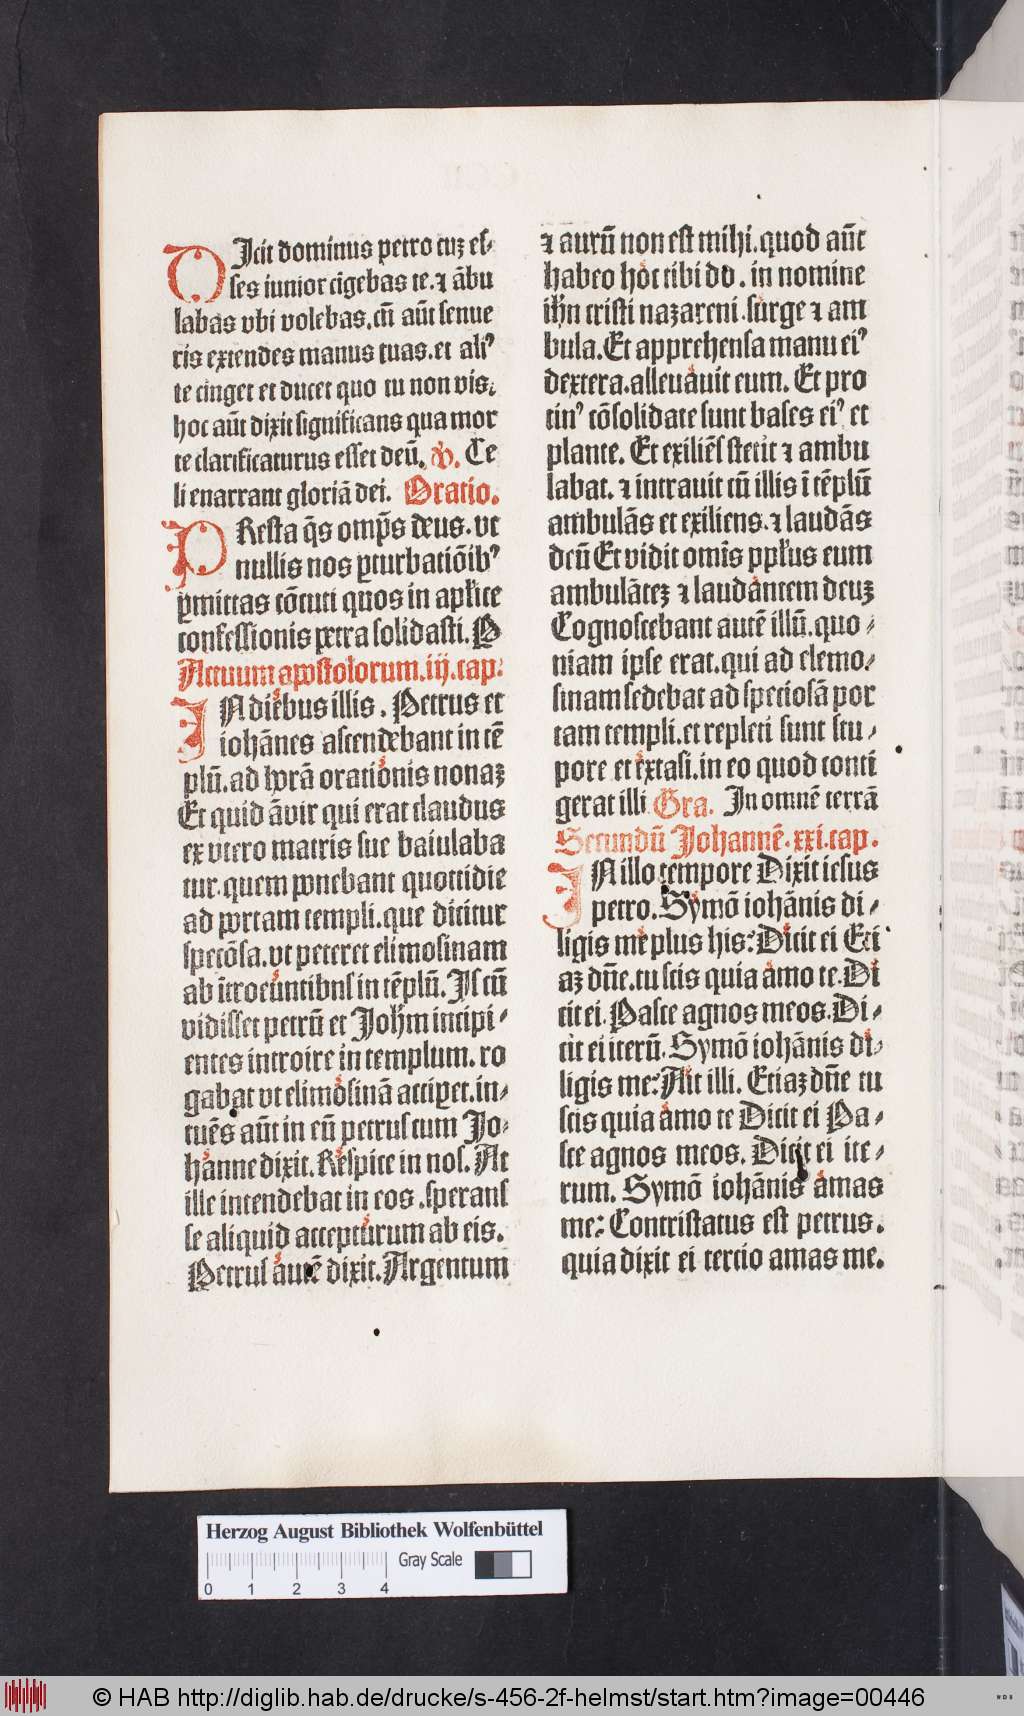 DJcit dominus petro cuꝫ eſ⸗
ſes iunior cīgebas te.⁊ ābu
labas vbi volebas.cū aūt ſenue
ris extendes manus tuas.et aliꝰ
te cinget et ducet quo tu non vis.
hoc aūt dixit ſignificans qua mor
te clarificaturus eſſet deū. v̓. Ce
li enarrant gloriā dei. Oratio.
PReſta q̄s omp̄s deus.vt
nullis nos ꝑturbatiōibꝰ
ꝑmittas cōcuti quos in apľice
confeſſionis petra ſolidaſti. P
Actuum apoſtolorum.iij.cap.
IN diebus illis. Petrus et
iohānes aſcendebant in tē
plū.ad horā orationis nonaꝫ
Et quid āvir qui erat claudus
ex vtero matris ſue baiulaba
tur.quem ponebant quottidie
ad portam templi.que dicitur
ſpecōſa.vt peteret elimoſinam
ab ītroeuntibuſ in tēplū. Jſ cū
vidiſſet petrū et Johm incipi⸗
entes introire in templum.ro
gabat vt elimoſinā acciꝑet.in⸗
tuēs aūt in eū petruſ cum Jo⸗
hanne dixit.Reſpice in noſ. At
ille intendebat in eos.ſperanſ
ſe aliquid accepturum ab eis.
Petruſ autē dixit. Argentum
⁊ aurū non eſt mihi.quod aūt
habeo hoc tibi do. in nomine
ihū criſti nazareni.ſurge ⁊ am
bula.Et apprehenſa manu eiꝰ
dextera.alleuauit eum. Et pro
tinꝰ cōſolidate ſunt baſes eiꝰ et
plante. Et exiliēſ ſtetit ⁊ ambu
labat. ⁊ intrauit cū illis ī tēplū
ambulās et exiliens.⁊ laudās
deū Et vidit omīs ppľus eum
ambulāteꝫ ⁊ laudantem deuꝫ
Cognoſcebant autē illū.quo⸗
niam ipſe erat.qui ad elemo⸗
ſinam ſedebat ad ſpecioſā por
tam templi.et repleti ſunt ſtu⸗
pore et extaſi.in eo quod conti
gerat illi Gra. In omnē terrā
Secundū Johannē.xxi.cap.
IN illo tempore Dixit ieſus
petro.Symō iohānis di⸗
ligis me plus his? Dicit ei Eti
aꝫ dn̄e.tu ſcis quia amo te.Di
cit ei.Paſce agnos meos.Di⸗
cit ei iterū. Symō iohānis di⸗
ligis me? Ait illi. Etiaꝫ dn̄e tu
ſcis quia amo te Dicit ei Pa⸗
ſce agnos meos. Dicit ei ite⸗
rum. Symō iohānis amas
me? Contriſtatus eſt petrus.
quia dixit ei tercio amas me.
Herzog August Bibliothek Wolfenbüttel
Gray Scale
0 1 2 3 4
© HAB http://diglib.hab.de/drucke/s-456-2f-helmst/start.htm?image=00446